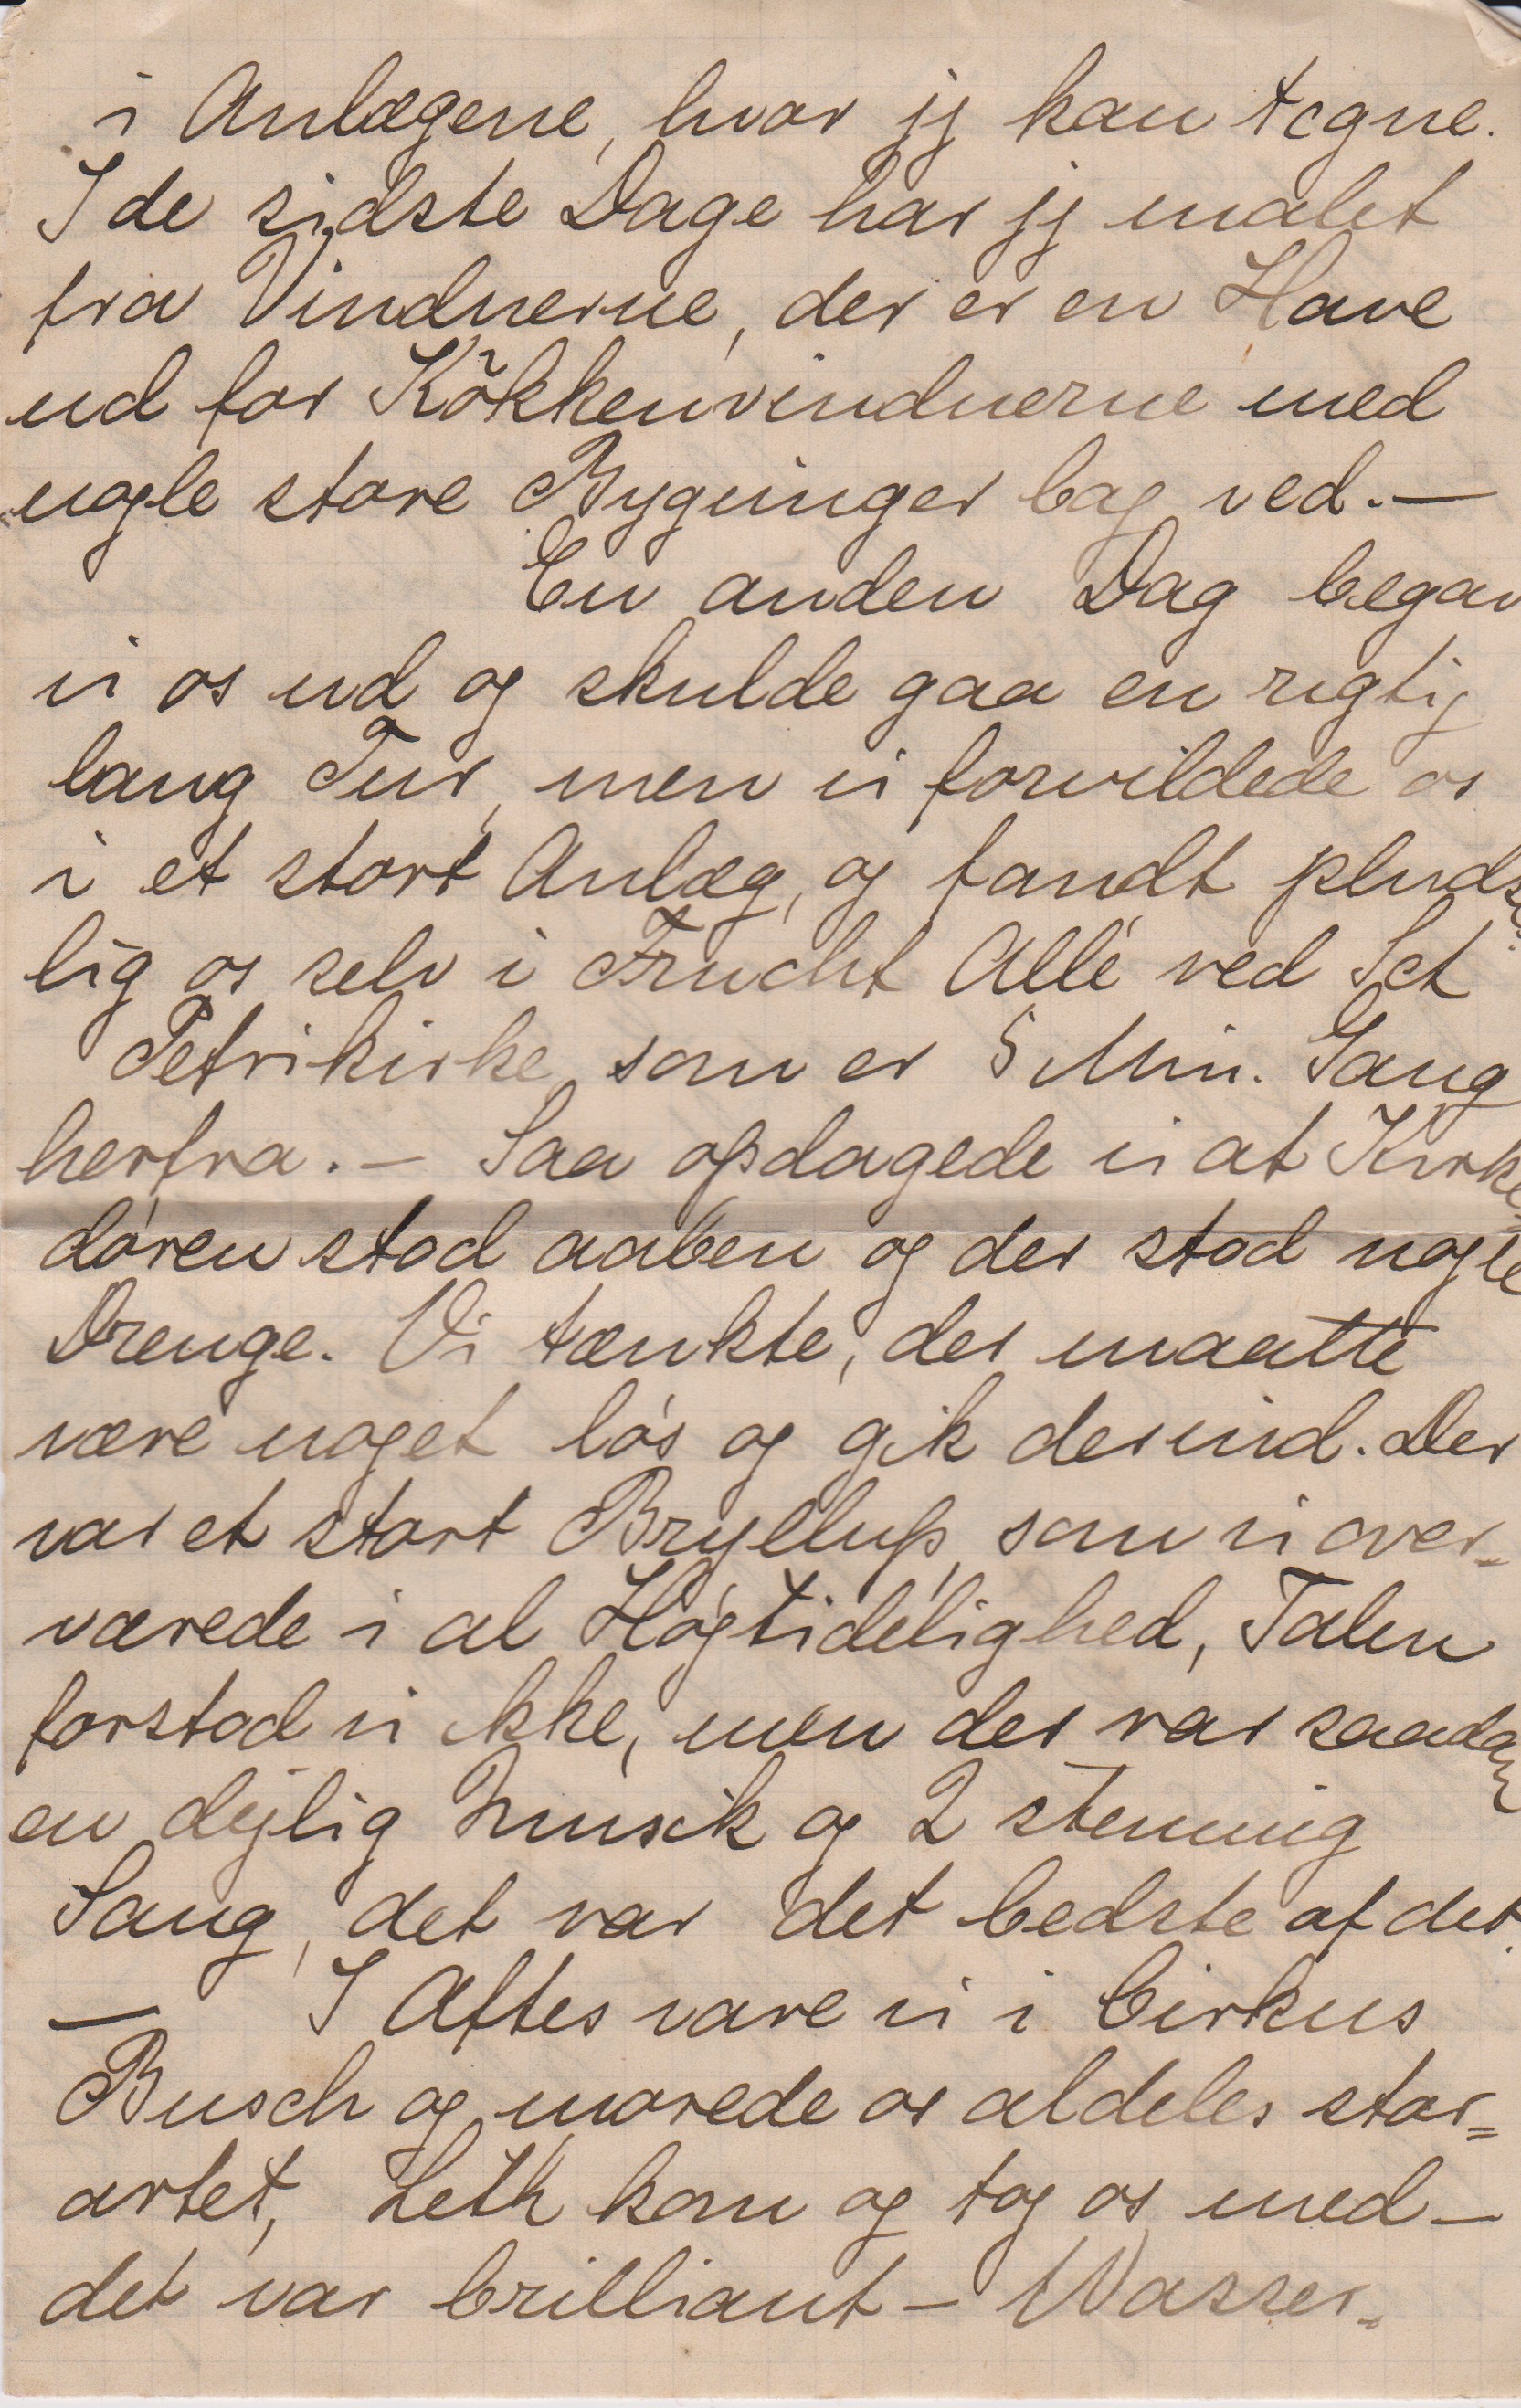 i Anlægene, hvor jg kan tegne.
I de sidste Dage har jg malet
fra Vinduerne, der er en Have
ud for Kökkenvinduerne med
nogle store Bygninger bag ved. —
En anden Dag begav
vi os ud og skulde gaa en rigtig
lang Tur, men vi forvildede os
i et stort Anlæg, og fandt pludse-
lig os selv i Frucht Allé ved Sct
Petrikirke som er 5 Min. Gang
herfra. — Saa opdagede vi at Kirke-
dóren stod aaben og der stod nogle
Drenge. Vi tænkte, der maatte
være noget lós og gik derind. Der
var et stort Bryllup, som vi over-
værede i al Højtidelighed, Talen
forstod vi ikke, men der var saadan
en dejlig Musik og 2 stemmig
Sang, det var det bedste af det.
— I Aftes vare vi i Cirkus
Busch og morede os aldeles stor=
artet, Leth kom og tog os med —
det var brilliant — Wasser-